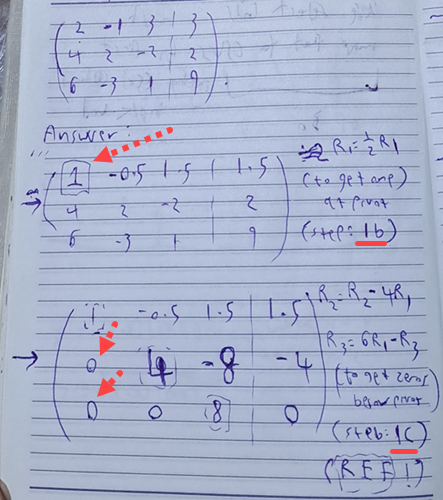 2 -1 3 | 3
4 2 -2 | 2
6 -3 1 | 9
Answer:
1 -0.5 1.5 | 1.5
4 2 -2 | 2
6 -3 1 | 9
R₁=½R₁
(to get one)
at pivot
(step: 1b)
1 -0.5 1.5 | 1.5
0 4 -8 | -4
0 0 8 | 0
R₂=R₂-4R₁
R₃=6R₁-R₃
(to get zeros
below pivot)
(step: 1C)
(REF!)